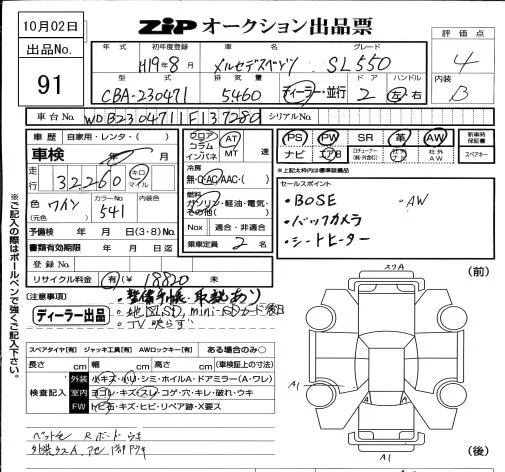 10月02日
ZIP オークション出品票
出品No.
91
年式 初年度登録 車名 グレード
H19年8月 メルセデスベンツ SL550
評価点
4
内装
B
型式 排気量 ドア ハンドル
CBA-230471 5460 ディーラー・並行 2 左 右
車台No. WDB2304711F137280 シリアルNo.
車歴 自家用・レンタ・( )
フロア コラム インパネ AT MT 速
PS PW SR 革 AW 新車時保証書
ナビ エアB 社外ナビ 社外AW スペアキー
車検 年 月
※上記太枠内は標準装備品
走行 32,260 キロ マイル
冷房
無・C・AC・AAC・( )
セールスポイント
・BOSE ・AW
・バックカメラ
・シートヒーター
燃料
ガソリン・軽油・電気・その他( )
色(元色) ワイン カラーNo. 541 内装色
予備検 年 月 日(3・8)モデル
Nox 適合・非適合
書類有効期限 年 月 日迄
乗車定員 2 名
登録No.
リサイクル料金 有(¥ 18820 未
(注意事項)
・整備手帳・取説あり
ディーラー出品
・TV映らず
スペアタイヤ[有] ジャッキ工具[有] AWロックキー[有] ある場合のみ○
長さ cm 幅 cm 高さ cm (車検証上の寸法)
検査記入
外装 小キズ・小リ・シミ・ホイルA・ドアミラー(A・ワレ)
室内 ヨゴレ・キズ・スレ・コゲ・穴・キレ・破れ・ウキ
FW トビ石・キズ・ヒビ・リペア跡・X要ス
※ご記入の際はボールペンで強くご記入下さい。
スリA
(前)
A1
A
A
A1
(後)